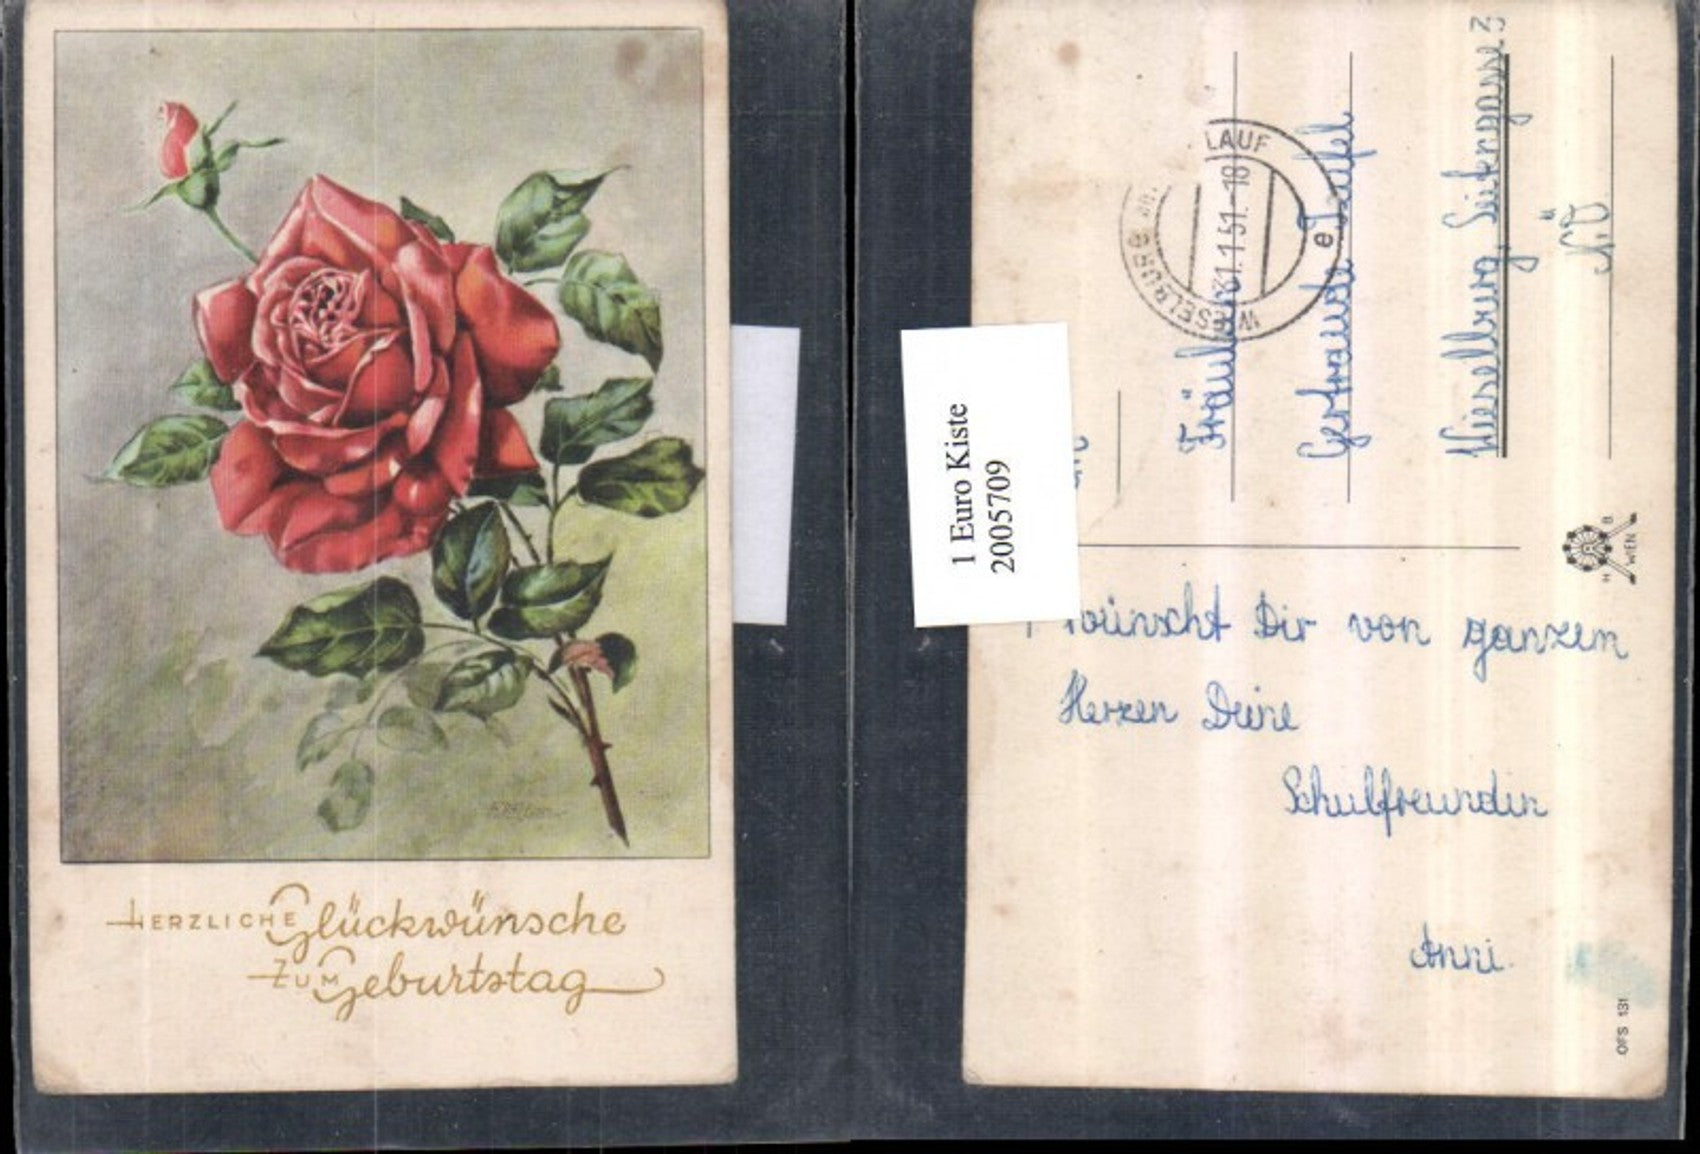 HERZLICHE Glückwünsche
ZUM Geburtstag
1 Euro Kiste
2005709
LAUF
WIESELBURG
31.1.51.-18
e
Fräulein
Gertraude
Wieselburg,
N.Ö
H B
WIEN
wünscht Dir von ganzem
Herzen Deine
Schulfreundin
Anni.
OFS 131